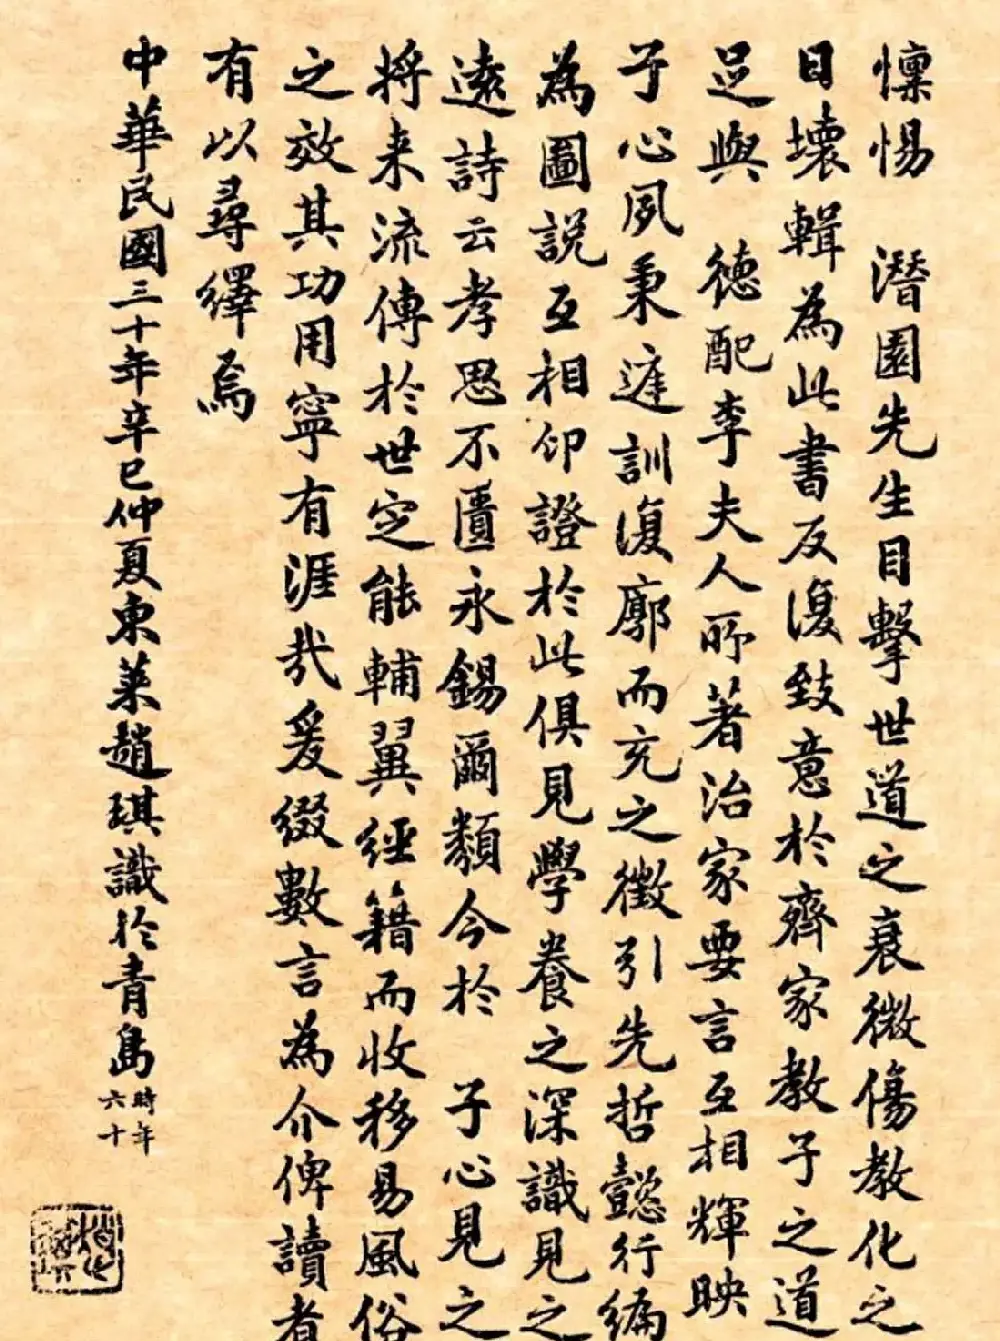 懍惕　潛園先生目擊世道之衰微傷教化之
日壞輯為此書反復致意於齊家教子之道
足與　德配李夫人所著治家要言互相輝映
子心夙秉庭訓復廓而充之徵引先哲懿行編
為圖説互相印證於此俱見學養之深識見之
遠詩云孝思不匱永錫爾類今於　子心見之
将来流傳於世定能輔翼經籍而收移易風俗
之效其功用寧有涯哉爰綴數言為介俾讀者
有以尋繹焉
中華民國三十年辛巳仲夏東萊趙琪識於青島
時年
六十